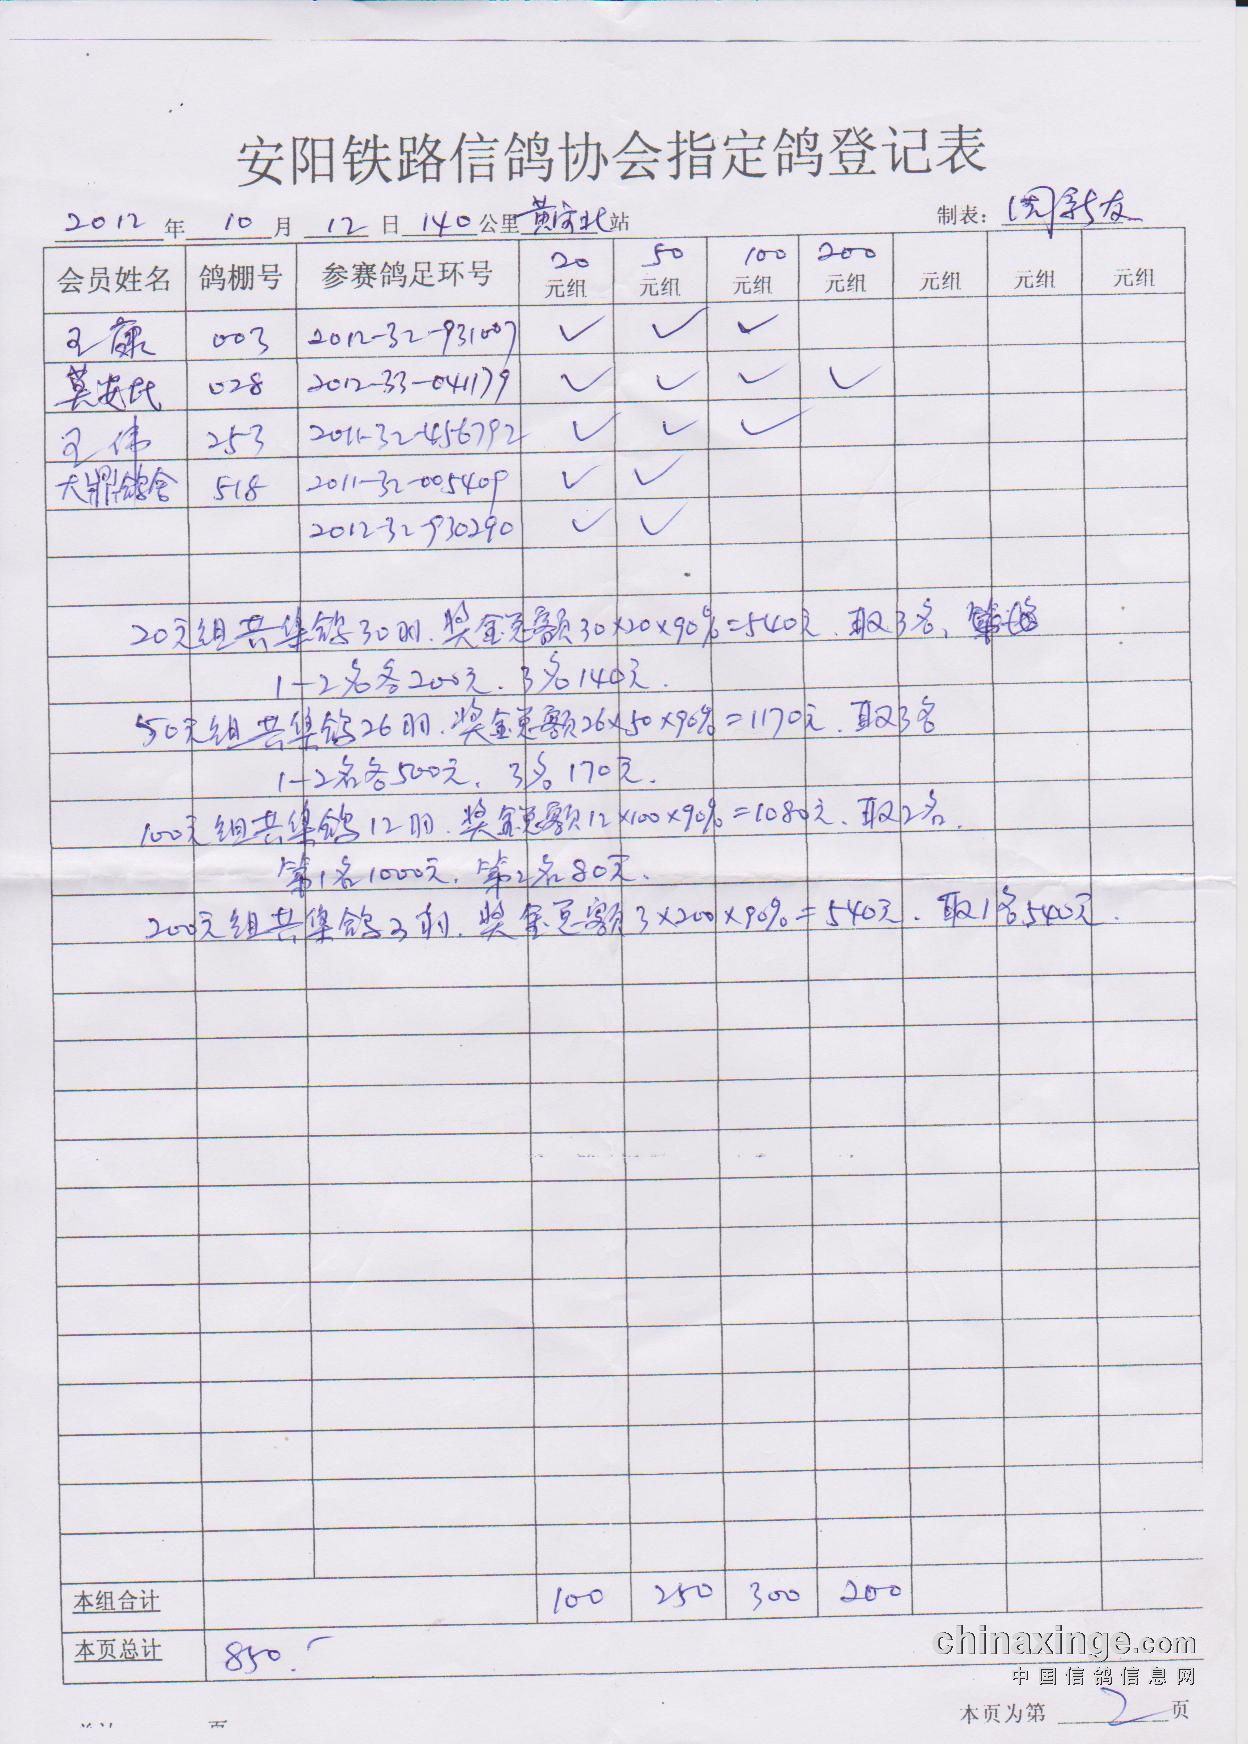 安阳铁路信鸽协会指定鸽登记表
2012年10月12日140公里黄河北站 制表：周新友
会员姓名 鸽棚号 参赛鸽足环号 20元组 50元组 100元组 200元组 元组 元组 元组
王康 003 2012-32-931007 ✓ ✓ ✓
莫安民 028 2012-33-041179 ✓ ✓ ✓ ✓
王伟 253 2011-32-456792 ✓ ✓ ✓
大鼎鸽舍 518 2011-32-005409 ✓ ✓
2012-32-930290 ✓ ✓
20元组共集鸽30羽.奖金总额30×20×90%=540元.取3名、
1-2名各200元.3名140元.
50元组共集鸽26羽.奖金总额26×50×90%=1170元.取3名
1-2名各500元.3名170元.
100元组共集鸽12羽.奖金总额12×100×90%=1080元.取2名.
第1名1000元.第2名80元.
200元组共集鸽3羽.奖金总额3×200×90%=540元.取1名540元.
本组合计 100 250 300 200
本页总计 850.-
chinaxinge.com
中国信鸽信息网
本页为第2页